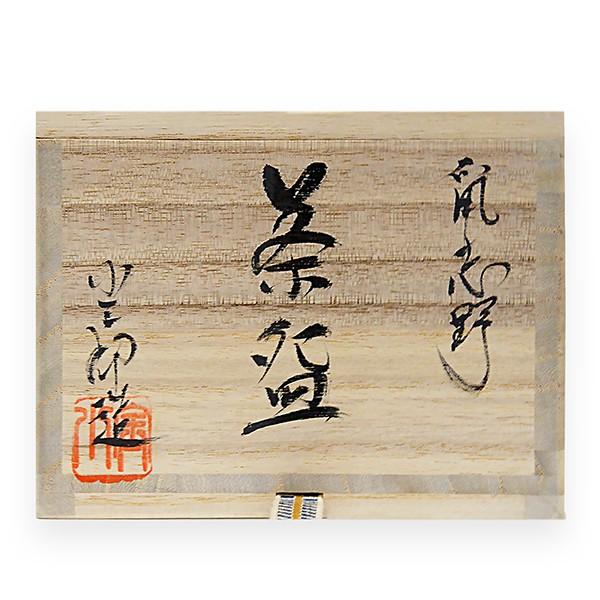 鼠志野
茶盌
小三郎造